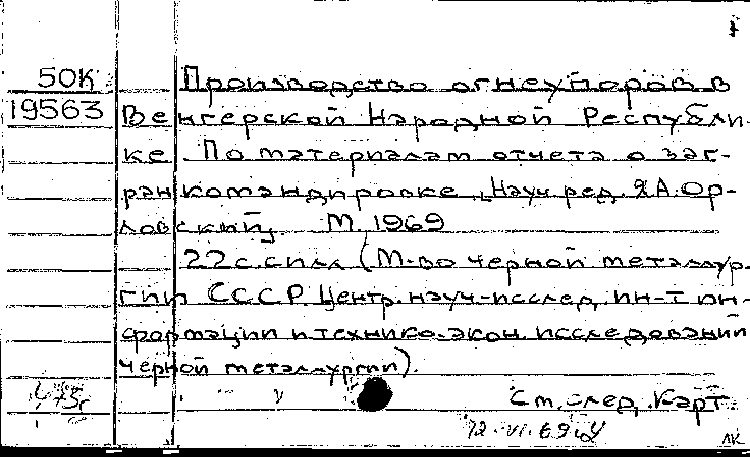 50К Производство огнеупоров в
19563 Венгерской Народной Республи-
ке. По материалам отчета о заг-
ранкомандировке. [Науч. ред. Я.А. Ор-
ловский]. М. 1969
22 с. с илл. (М-во черной металлур-
гии СССР. Центр. науч.-исслед. ин-т ин-
формации и технико-экон. исследований
черной металлургии).
См. след. карт.
12.VI.69
ЛК